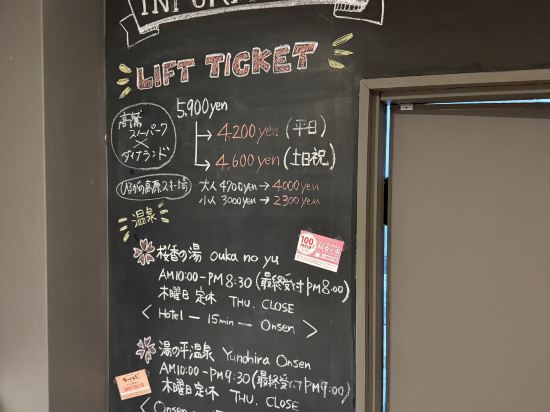 LIFT TICKET
5,900yen
高鷲
スノーパーク
×
ダイナランド
→ 4200yen (平日)
→ 4,600yen (土日祝)
ひるがの高原スキー場
大人 4700yen → 4000yen
小人 3000yen → 2300yen
温泉
桜香の湯 ouka no yu
AM10:00-PM8:30(最終受付PM8:00)
木曜日 定休 THU. CLOSE
< Hotel — 15min — Onsen >
100
湯の平温泉 Yunohira Onsen
AM10:00-PM9:30(最終受付PM9:00)
木曜日定休 THU. CLOSE